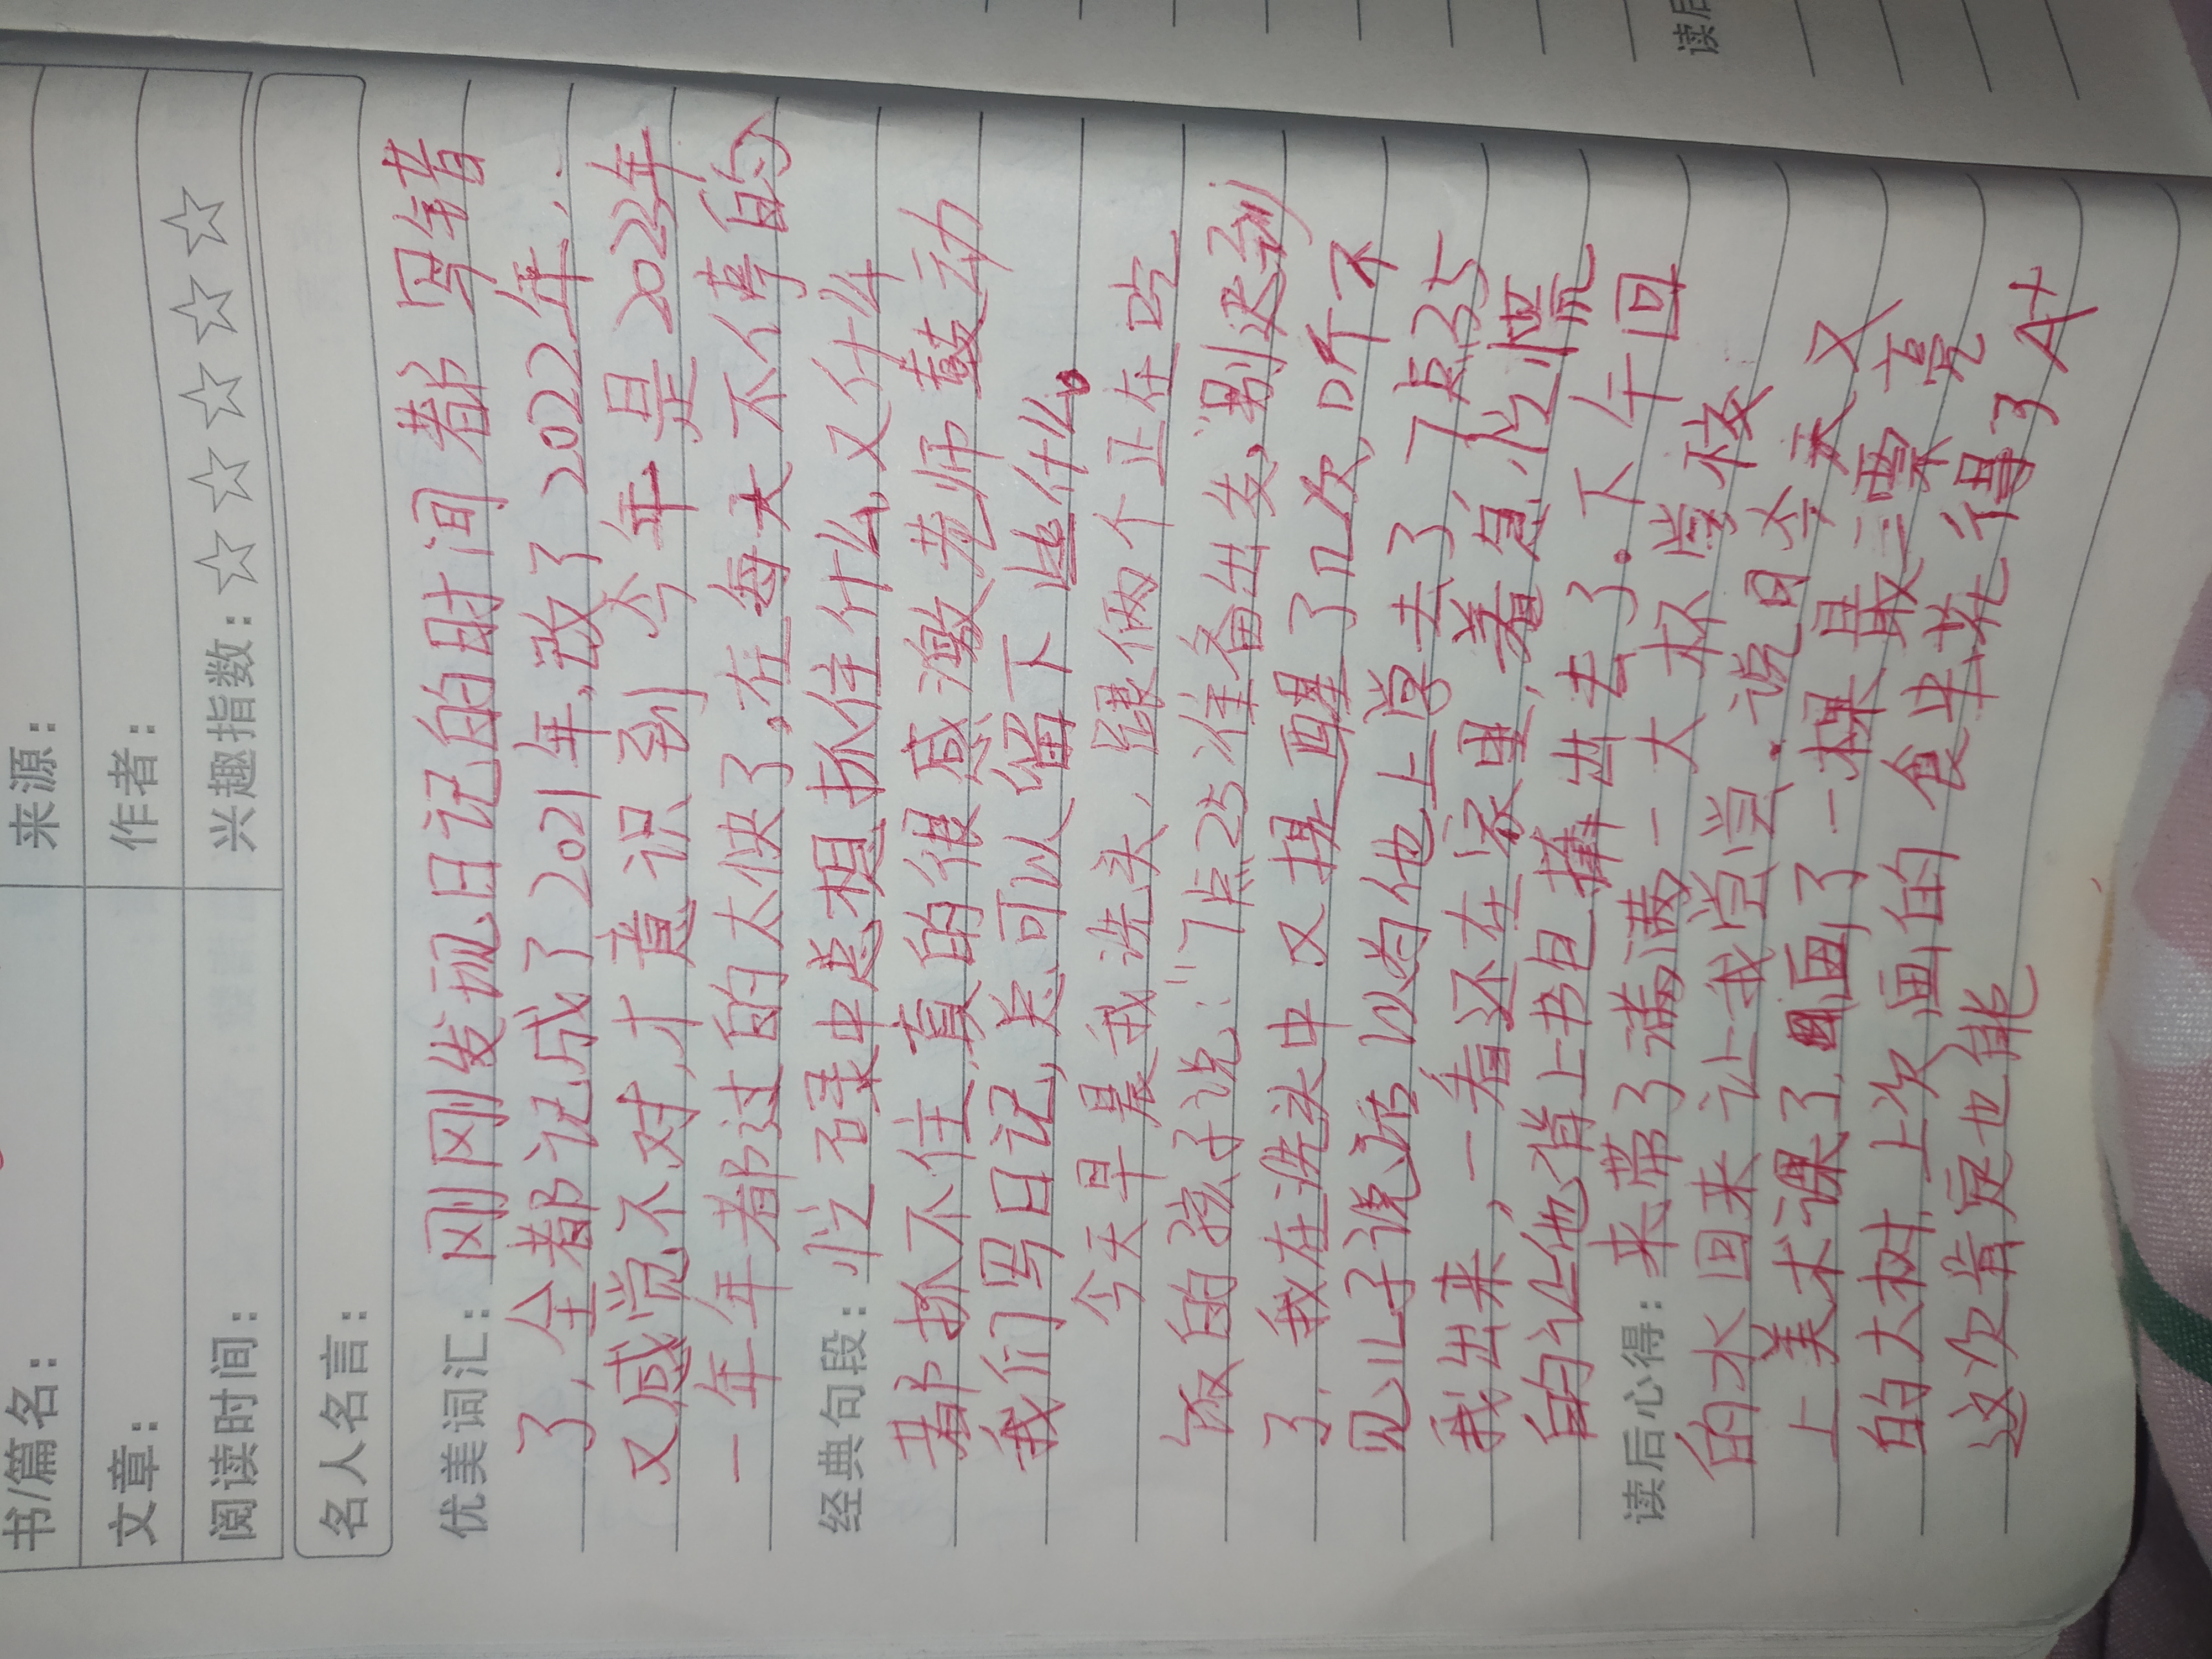 书/篇名： 来源：
文章： 作者：
阅读时间： 兴趣指数：☆☆☆☆☆
名人名言：
优美词汇：刚刚发现日记的时间都写错
了，全都记成了2021年，改了2022年，
又感觉不对，才意识到今年是2023年
一年年都过的太快了。在每天不停的
经典句段：忙碌中总想抓住什么又什么
都抓不住，真的很感激老师鼓动
我们写日记，总可以留下些什么。
今天早晨我洗头，跟俩个正在吃
饭的孩子说：“7点25准备出发，别迟到
了，我在洗头中又提醒了几次，咋不
见儿子说话以为他上学去了7点35
我出来，一看还在家里，着急忙慌
的让他背上书包撵出去了。下午回
读后心得：来带了满满一大杯学校
的水回来让我尝尝，说今天又
上美术课了，画了一棵最漂亮
的大树，上次画的食堂得了A+
这次肯定也能
读后